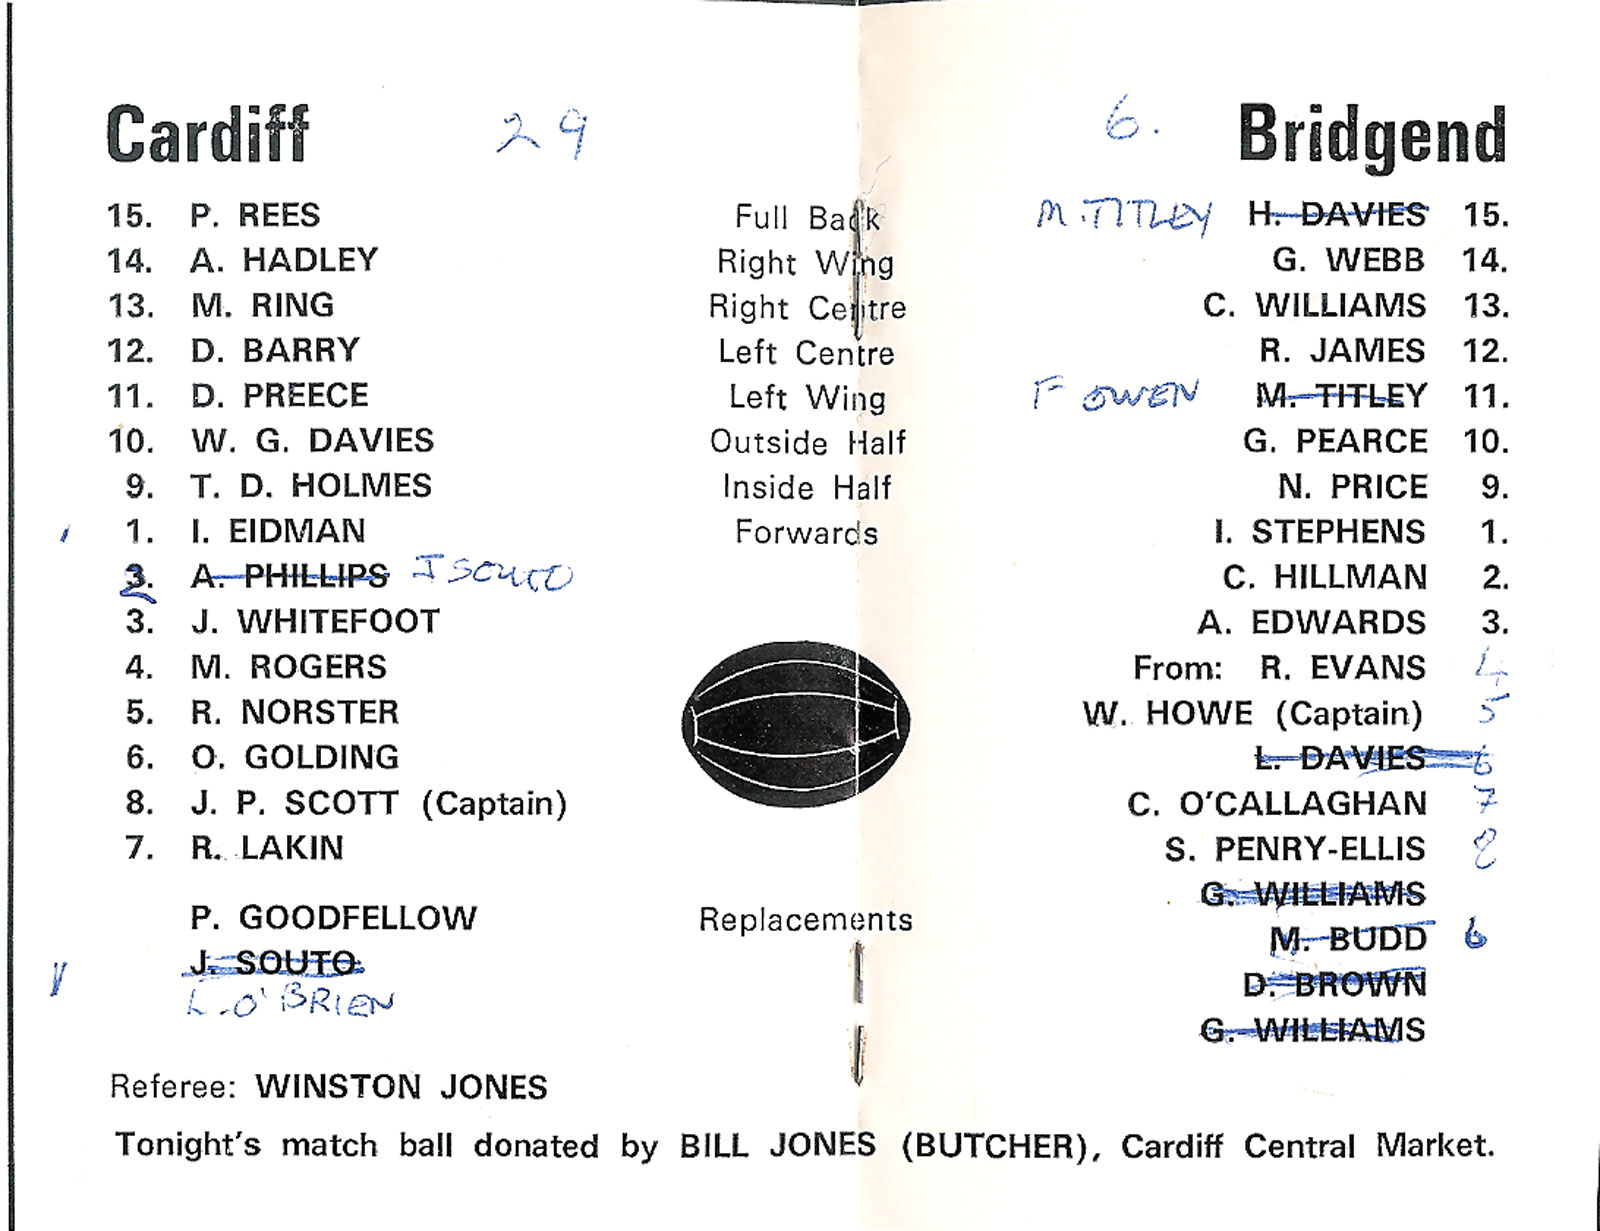 Cardiff 29 6. Bridgend
15. P. REES Full Back M. TITLEY H. DAVIES 15.
14. A. HADLEY Right Wing G. WEBB 14.
13. M. RING Right Centre C. WILLIAMS 13.
12. D. BARRY Left Centre R. JAMES 12.
11. D. PREECE Left Wing F OWEN M. TITLEY 11.
10. W. G. DAVIES Outside Half G. PEARCE 10.
9. T. D. HOLMES Inside Half N. PRICE 9.
1. I. EIDMAN Forwards I. STEPHENS 1.
2. A. PHILLIPS J SOUTO C. HILLMAN 2.
3. J. WHITEFOOT A. EDWARDS 3.
4. M. ROGERS From: R. EVANS 4
5. R. NORSTER W. HOWE (Captain) 5
6. O. GOLDING L. DAVIES 6
8. J. P. SCOTT (Captain) C. O'CALLAGHAN 7
7. R. LAKIN S. PENRY-ELLIS 8
G. WILLIAMS
P. GOODFELLOW Replacements M. BUDD 6
J. SOUTO D. BROWN
L. O'BRIEN G. WILLIAMS
Referee: WINSTON JONES
Tonight's match ball donated by BILL JONES (BUTCHER), Cardiff Central Market.